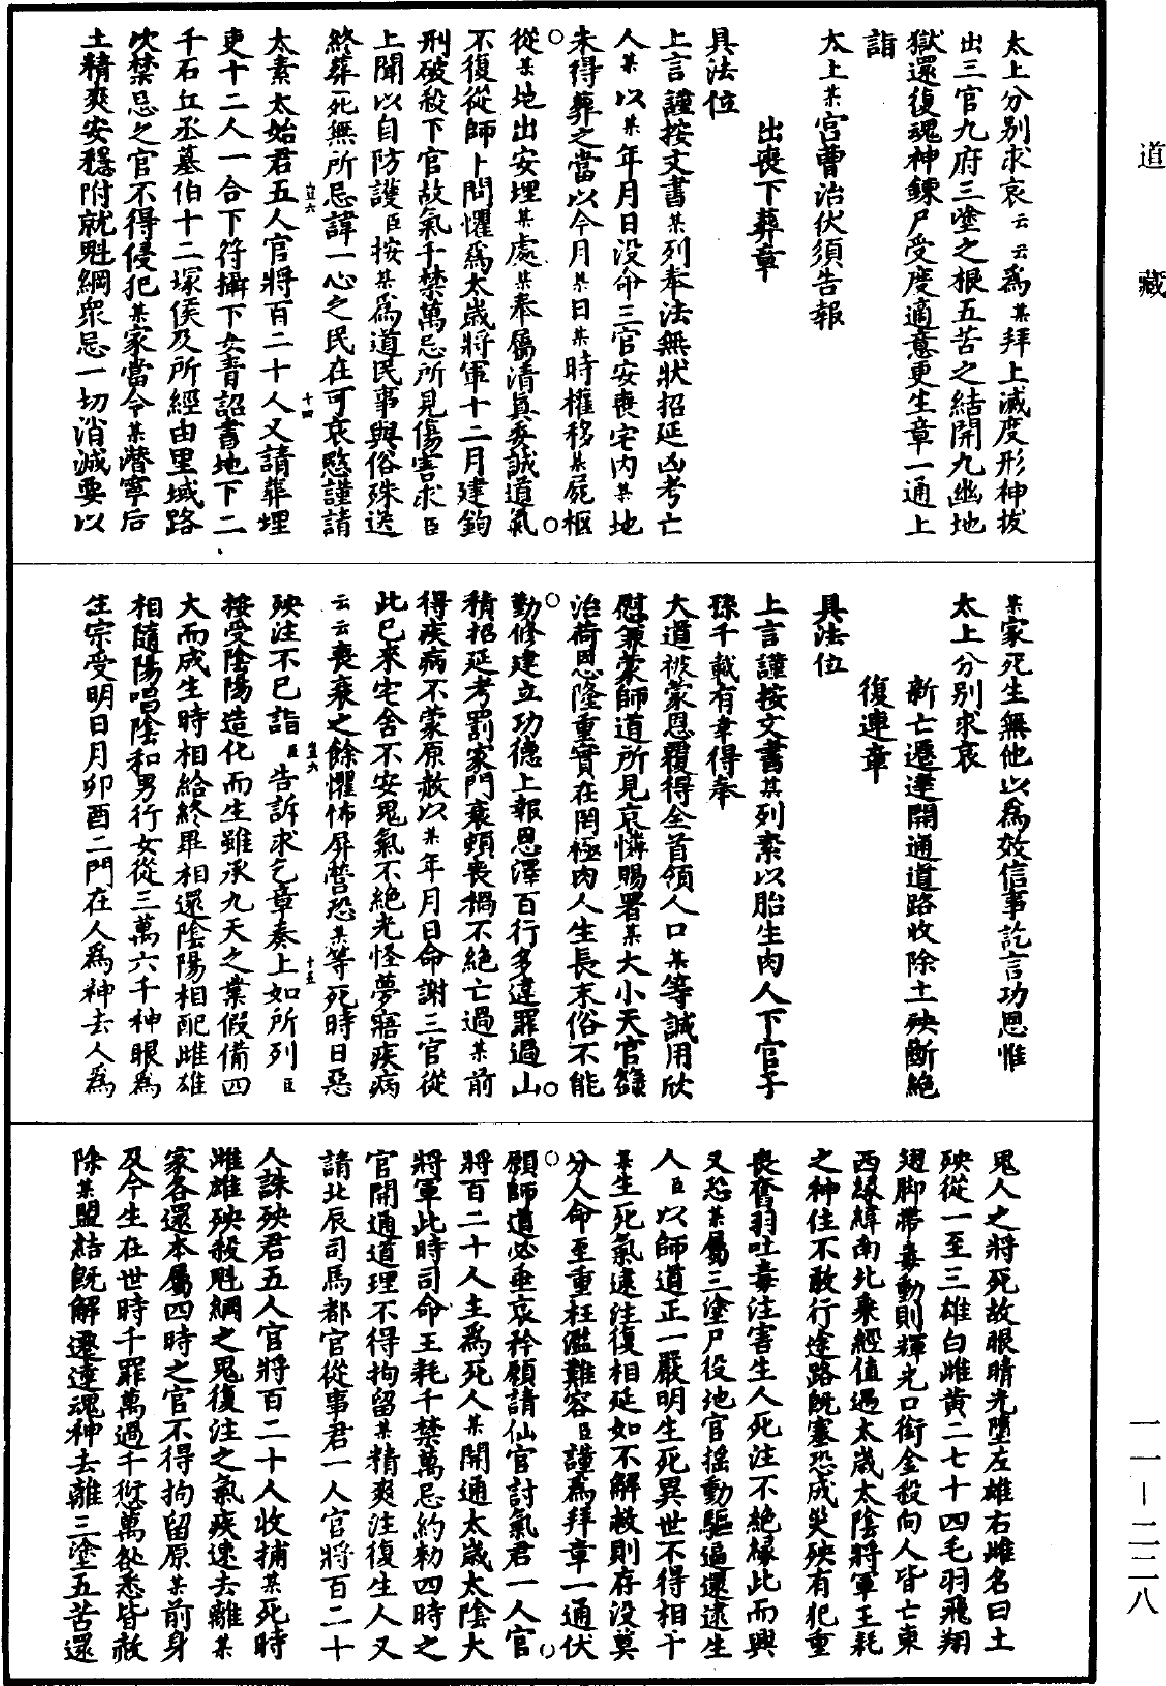 道藏
一一—二二八
太上分別求哀云云爲某拜上滅度形神拔
出三官九府三塗之根五苦之結開九幽地
獄還復魂神鍊尸受度適意更生章一通上
詣
太上某宮曹治伏須告報
出喪下葬章
具法位
上言謹按文書某列奉法無狀招延凶考亡
人某以某年月日没命三官安喪宅内某地
未得葬之當以今月某日某時權移某屍柩
從某地出安埋某處某奉屬清真委誠道氣
不復從師卜問懼爲太歲將軍十二月建鉤
刑破殺下官故氣千禁萬忌所見傷害求臣
上聞以自防護臣按某爲道民事與俗殊送
終葬死無所忌諱一心之民在可哀愍謹請
太素太始君五人官將百二十人又請葬埋
吏十二人一合下符攝下女青詔書地下二
千石丘丞墓伯十二塚侯及所經由里域路
次禁忌之官不得侵犯某家當令某潛寧后
土精爽安穩附就魁綱衆忌一切消滅要以
某家死生無他以爲效信事訖言功恩惟
太上分別求哀
新亡遷達開通道路收除土殃斷絶
復連章
具法位
上言謹按文書某列素以胎生肉人下官子
孫千載有幸得奉
大道被蒙恩覆得全首領人口某等誠用欣
慰兼蒙師道所見哀憐賜署某大小天官籙
治荷恩隆重實在罔極肉人生長末俗不能
勤修建立功德上報恩澤百行多違罪過山
積招延考罰家門衰頓喪禍不絶亡過某前
得疾病不蒙原赦以某年月日命謝三官從
此已來宅舍不安鬼氣不絶光怪夢寤疾病
云云喪衰之餘懼怖屏營恐某等死時日惡
殃注不已詣臣告訴求乞章奏上如所列臣
按受陰陽造化而生雖承九天之業假備四
大而成生時相給終畢相還陰陽相配雌雄
相隨陽唱陰和男行女從三萬六千神眼爲
生宗受明日月卯酉二門在人爲神去人爲
鬼人之將死故眼睛光墮左雄右雌名曰土
殃從一至三雄白雌黄二七十四毛羽飛翔
翅脚帶毒動則輝光口銜金殺向人皆亡東
西緑緯南北乘經值遇太歲太陰將軍王耗
之神住不敢行途路旣塞恐成災殃有犯重
喪奮羽吐毒注害生人死注不絶縁此而興
又恐某屬三塗尸役地官揺動驅逼還逮生
人臣以師道正一嚴明生死異世不得相干
某生死氣逮注復相延如不解赦則存没莫
分人命至重枉濫難容臣謹爲拜章一通伏
願師道必垂哀矜願請仙官討氣君一人官
將百二十人主爲死人某開通太歲太陰大
將軍此時司命王耗千禁萬忌約勑四時之
官開通道理不得拘留某精爽注復生人又
請北辰司馬都官從事君一人官將百二十
人誅殃君五人官將百二十人收捕某死時
雌雄殃殺魁綱之鬼復注之氣疾速去離某
家各還本屬四時之官不得拘留原某前身
及今生在世時千罪萬過千愆萬咎悉皆赦
除某盟結旣解遷達魂神去離三塗五苦還